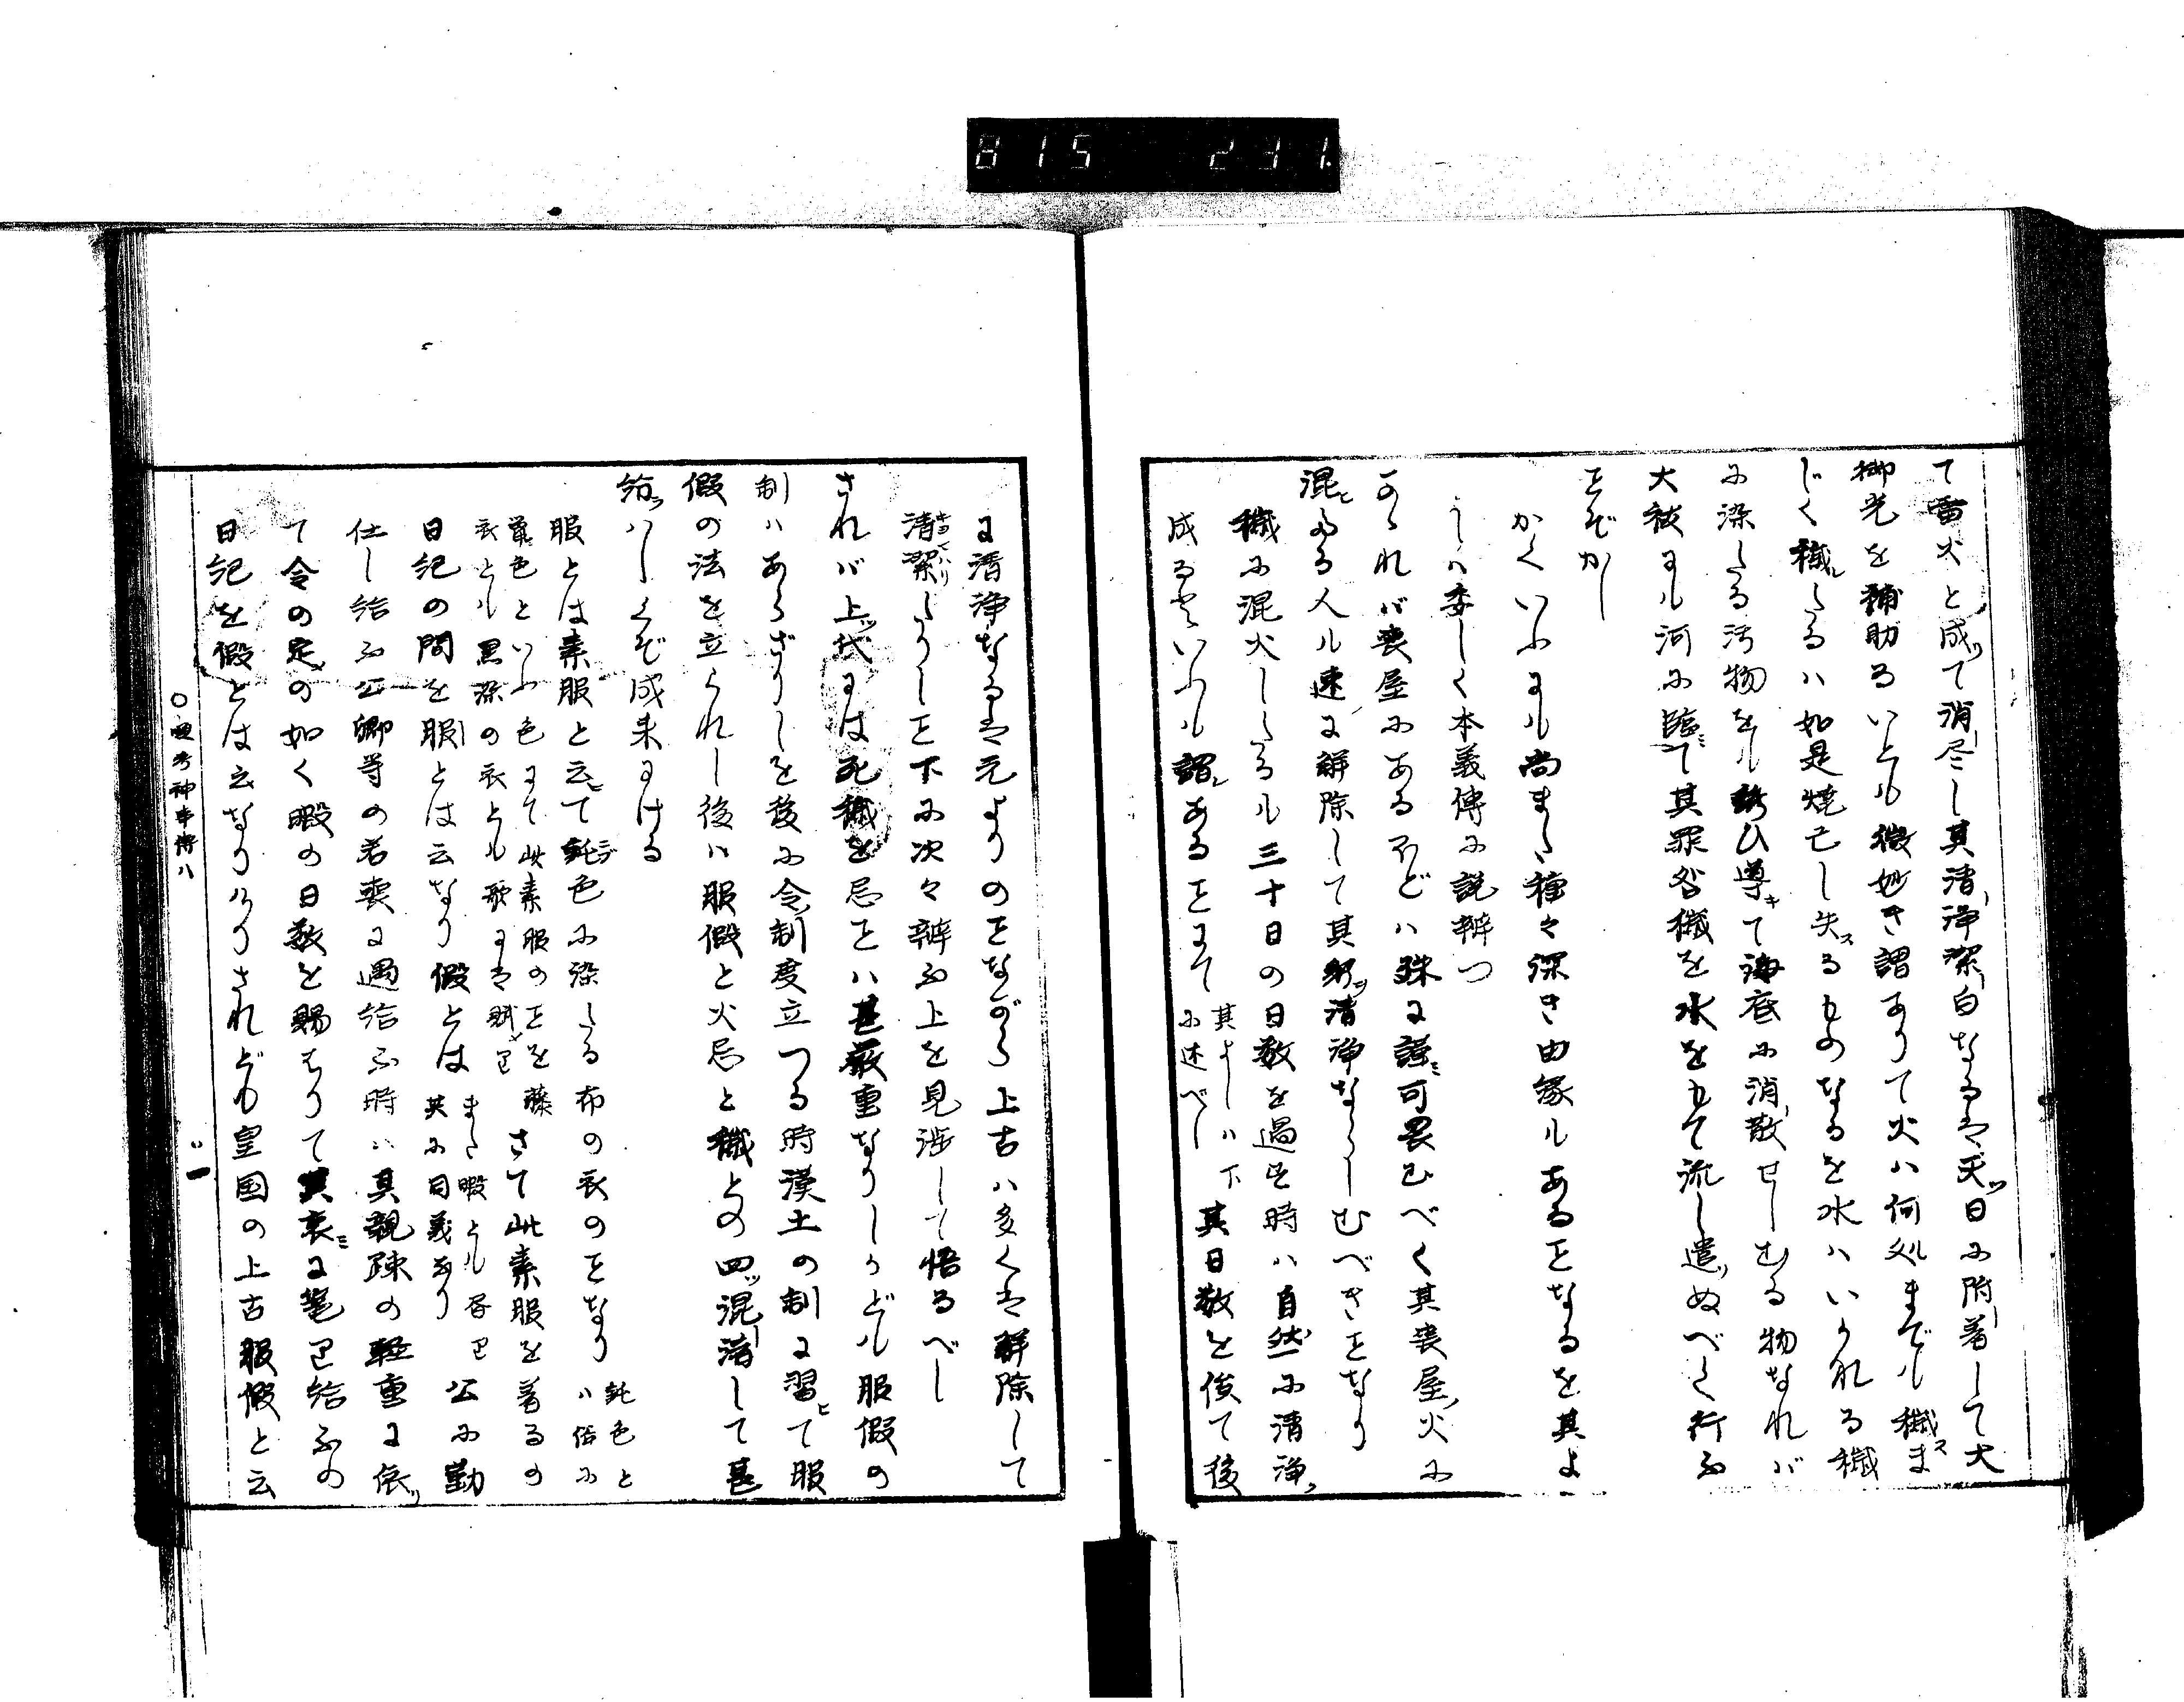 815 231
て雷火と成て消尽し其清浄潔白なるは天日に附着して大
御光を補助るいとも微妙き謂ありて火は何処までも穢ま
じく穢したるは如是焼亡し失るものなるを水はいかなる穢
に染たる汚物をも誘ひ導て海底に消散せしむる物なれば
大祓にも河に臨て其罪咎穢を水をもて流し遣ぬべく行ふ
ことぞかし
かくいふにも尚また種々深き由縁もあることなるを其よ
しは委しく本義傳に説辨つ
かゝれば喪屋にあるほどは殊に謹可畏むべく其喪屋火に
混たる人も速に解除して其躬清浄ならしむべきことなり
穢に混火したるも三十日の日数を過す時は自然に清浄
成るといふも謂あることにて其よしは下に述べし其日数を俟て後
に清浄なるは元よりのことながら上古は多くは解除して
清潔りたりしこと下に次々辨ふ上を見渉して悟るべし
されば上代には死穢を忌ことは甚厳重なりしかども服假の
制はあらざりしを後に令制度立つる時漢土の制に習て服
假の法を立られし後は服假と火忌と穢との四混淆して甚
給はしくぞ成来にける
服とは素服と云て鈍色に染たる布の衣のことなり鈍色とは俗に
鼠色といふ色にて此素服のことを藤衣とも黒染の衣とも歌には賦てさて此素服を著るの
日紀の間を服とは云なり假とはまた暇とも呑て共に同義なり公に勤
仕し給ふ公卿等の若喪に遇給ふ時は其親疎の軽重に依
て令の定の如く暇の日数を賜はりて其喪に篭て給ふの
日紀を假とは云なりけりされども皇国の上古服假と云